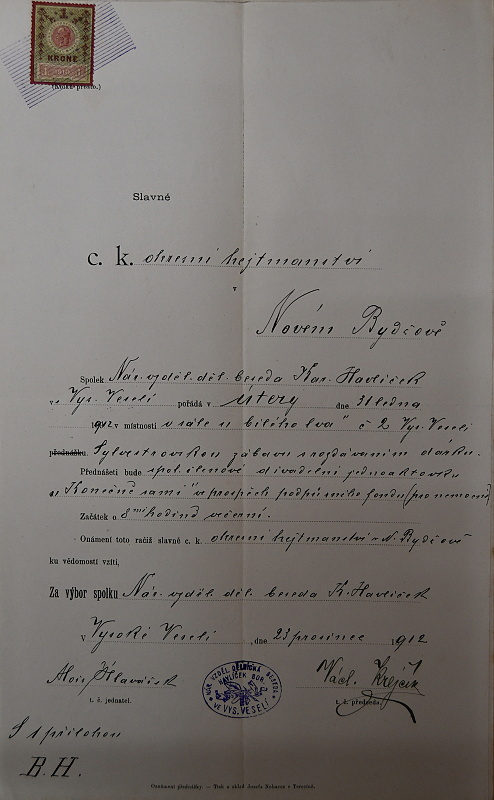 1 KRONE 1
(Místo pro kolek.)
Slavné
c. k. okresní hejtmanství
v
Novém Bydžově
Spolek Nár. vzděl. děl. beseda Kar. Havlíček
v Vys. Veselí pořádá v úterý dne 31 ledna
1912 v místnosti v sále u bílého lva" č 2 Vys. Veselí
přednášku. Sylvestrovskou zábavu s rozdáváním dárků.
Přednášeti bude spol. členové divadelní jednoaktovku
"Konečně sami" ve prospěch podpůrného fondu (pro nemocné)
Začátek o 8 mé hodině večerní.
Onámení toto račiž slavné c. k. okresní hejtmanství v N. Bydžově
ku vědomosti vzíti,
Za výbor spolku Nár. vzděl. děl. beseda K. Havlíček
V Vysoké Veselí, dne 23 prosinec 1912
Alois Hlaváček
t. č. jednatel.
NÁR. VZDĚL. DĚLNICKÁ BESEDA
HAVLÍČEK BOR.
VE VYS. VESELÍ
Václ. Krejčík
t. č. předseda.
S 1 přílohou
B. H.
Oznámení přednášky. — Tisk a sklad Josefa